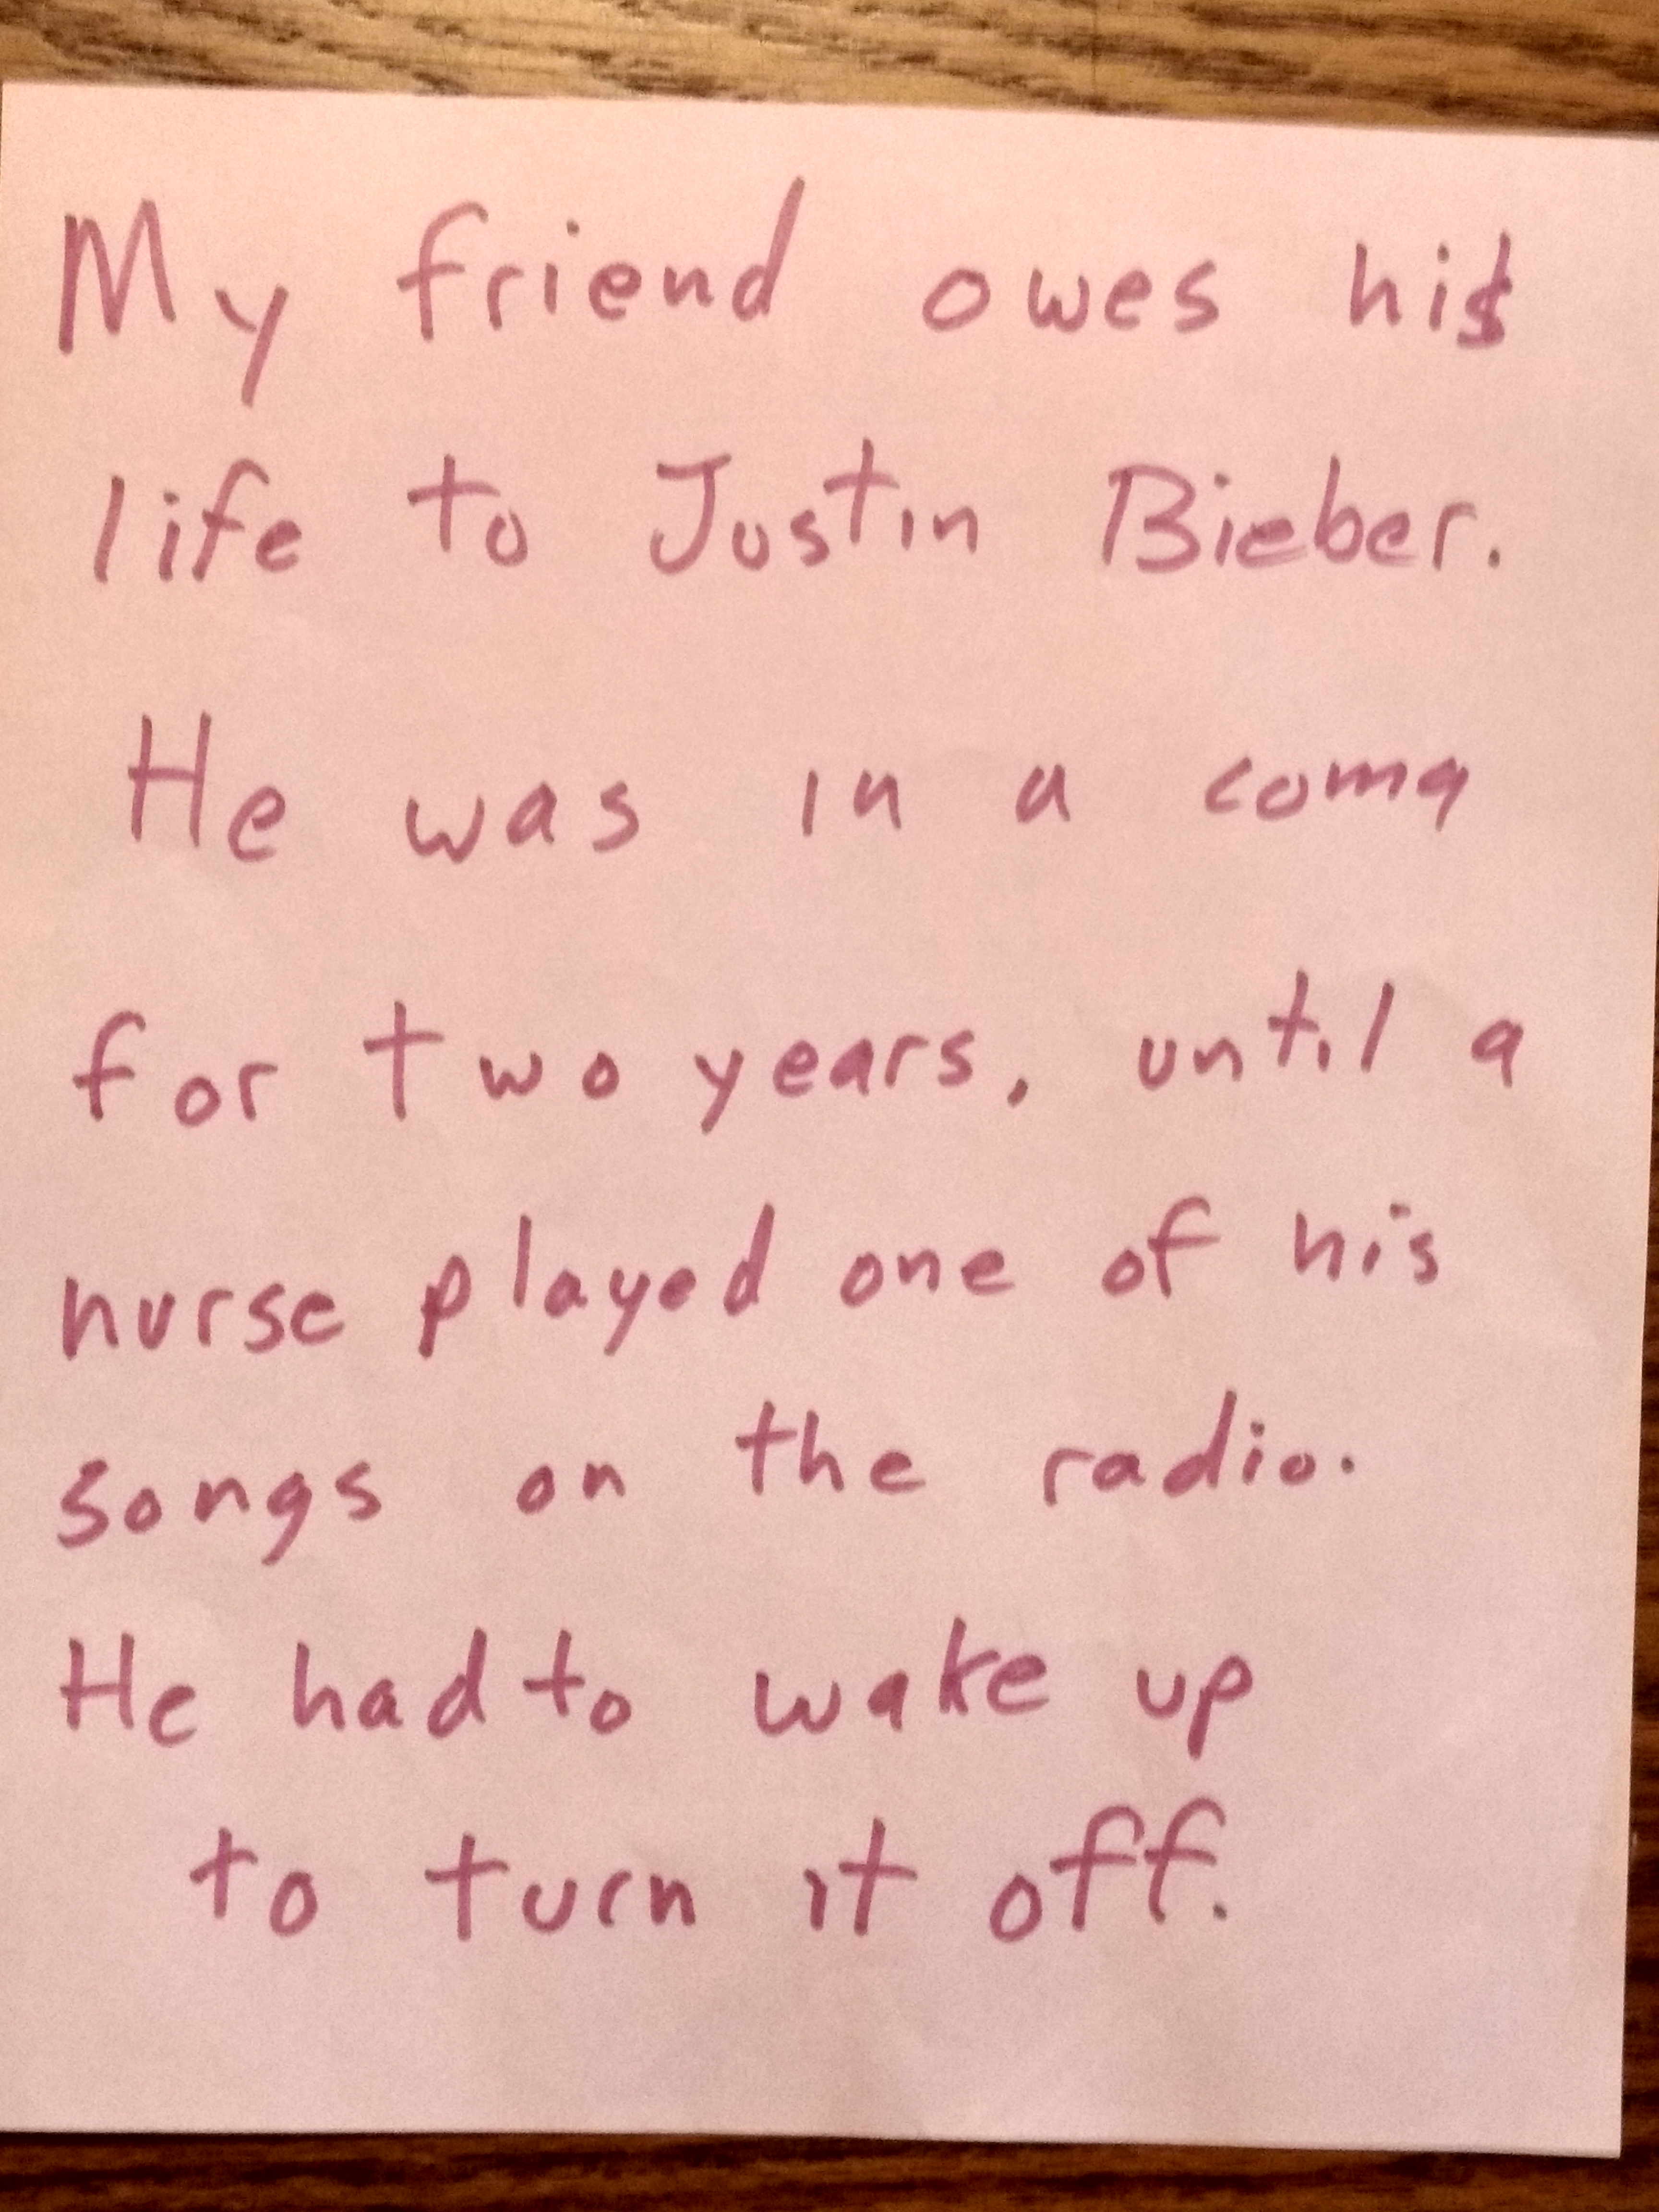 My friend owes his
life to Justin Bieber.
He was in a coma
for two years, until a
nurse played one of his
songs on the radio.
He had to wake up
to turn it off.